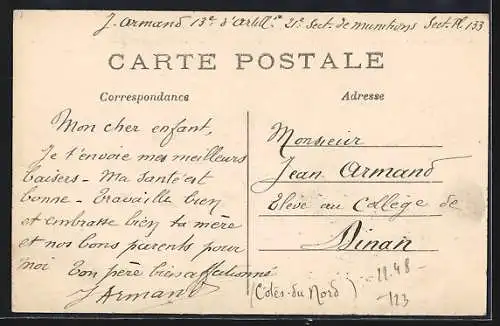 J. Armand 13e d'Artill ie 21e Sect. de munitions Sect. Pl. 133
CARTE POSTALE
Correspondance
Adresse
Mon cher enfant,
Je t'envoie mes meilleurs
baisers - Ma santé est
bonne - Travaille bien
et embrasse bien ta mère
et nos bons parents pour
moi
Ton père bien affectionné
J Armand
Monsieur
Jean Armand
Elève au Collège de
Dinan
(Côtes-du Nord)
-22.48-
-123